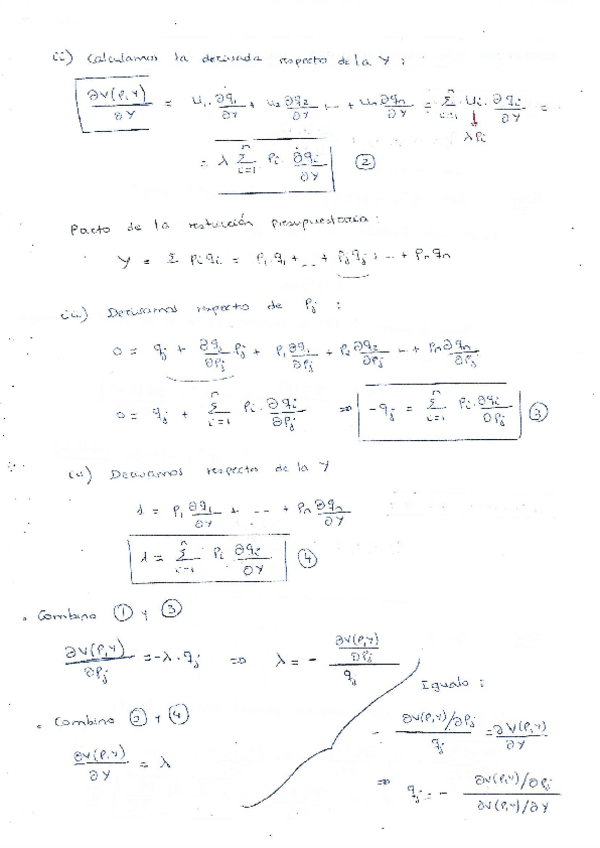 ii) Calculamos la derivada respecto de la Y :
∂V(P,Y)/∂Y = U₁·∂q₁/∂Y + U₂ ∂q₂/∂Y + ... + Uₙ ∂qₙ/∂Y = Σᵢ₌₁ⁿ Uᵢ · ∂qᵢ/∂Y =
λPᵢ
= λ Σᵢ₌₁ⁿ Pᵢ · ∂qᵢ/∂Y ②
Parto de la restricción presupuestaria :
Y = Σ Pᵢqᵢ = P₁·q₁ + ... + Pⱼqⱼ + ... + Pₙqₙ
iii) Derivamos respecto de Pⱼ :
0 = qⱼ + ∂qⱼ/∂Pⱼ Pⱼ + P₁ ∂q₁/∂Pⱼ + P₂ ∂q₂/∂Pⱼ ... + Pₙ ∂qₙ/∂Pⱼ
0 = qⱼ + Σᵢ₌₁ⁿ Pᵢ · ∂qᵢ/∂Pⱼ ⇒ -qⱼ = Σᵢ₌₁ⁿ Pᵢ · ∂qᵢ/∂Pⱼ ③
iv) Derivamos respecto de la Y
1 = P₁ ∂q₁/∂Y + ... + Pₙ ∂qₙ/∂Y
1 = Σᵢ₌₁ⁿ Pᵢ ∂qᵢ/∂Y ④
• Combino ① y ③
∂V(P,Y)/∂Pⱼ = -λ · qⱼ ⇒ λ = - (∂V(P,Y)/∂Pⱼ)/qⱼ
• Combino ② y ④
∂V(P,Y)/∂Y = λ
Igualo :
- (∂V(P,Y)/∂Pⱼ)/qⱼ = ∂V(P,Y)/∂Y
⇒ qⱼ = - (∂V(P,Y)/∂Pⱼ)/(∂V(P,Y)/∂Y)